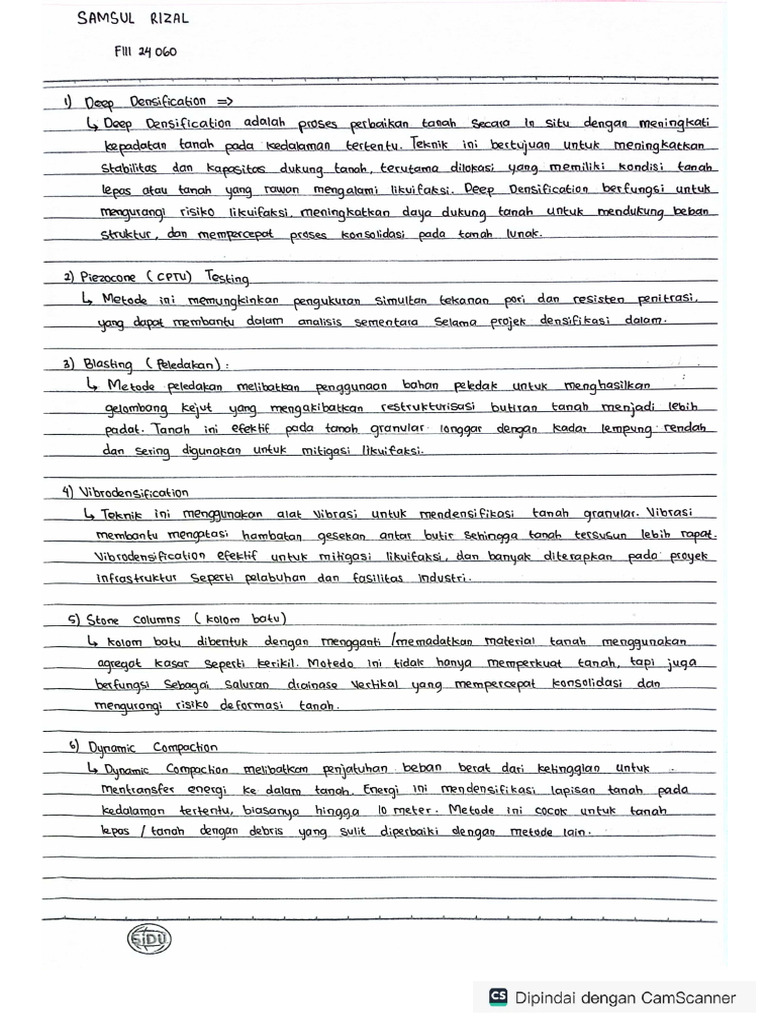 SAMSUL RIZAL
FIII 24 060
1) Deep Densification =>
↳ Deep Densification adalah proses perbaikan tanah secara in situ dengan meningkati
kepadatan tanah pada kedalaman tertentu. Teknik ini bertujuan untuk meningkatkan
stabilitas dan kapasitas dukung tanah, terutama dilokasi yang memiliki kondisi tanah
lepas atau tanah yang rawan mengalami likuifaksi. Deep Densification berfungsi untuk
mengurangi risiko likuifaksi, meningkatkan daya dukung tanah untuk mendukung beban
struktur, dan mempercepat proses konsolidasi pada tanah lunak.
2) Piezocone (CPTU) Testing
↳ Metode ini memungkinkan pengukuran simultan tekanan pori dan resisten penitrasi,
yang dapat membantu dalam analisis sementara selama projek densifikasi dalam.
3) Blasting (Peledakan) :
↳ Metode peledakan melibatkan penggunaan bahan peledak untuk menghasilkan
gelombang kejut yang mengakibatkan restrukturisasi butiran tanah menjadi lebih
padat. Tanah ini efektif pada tanah granular longgar dengan kadar lempung rendah
dan sering digunakan untuk mitigasi likuifaksi.
4) Vibrodensification
↳ Teknik ini menggunakan alat vibrasi untuk mendensifikasi tanah granular. Vibrasi
membantu mengatasi hambatan gesekan antar butir sehingga tanah tersusun lebih rapat.
Vibrodensification efektif untuk mitigasi likuifaksi, dan banyak diterapkan pada proyek
infrastruktur seperti pelabuhan dan fasilitas industri.
5) Stone Columns (kolom batu)
↳ kolom batu dibentuk dengan mengganti /memadatkan material tanah menggunakan
agregat kasar seperti kerikil. Motedo ini tidak hanya memperkuat tanah, tapi juga
berfungsi sebagai saluran drainase vertikal yang mempercepat konsolidasi dan
mengurangi risiko deformasi tanah.
6) Dynamic Compaction
↳ Dynamic Compaction melibatkan penjatuhan beban berat dari ketinggian untuk
mentransfer energi ke dalam tanah. Energi ini mendensifikasi lapisan tanah pada
kedalaman tertentu, biasanya hingga 10 meter. Metode ini cocok untuk tanah
lepas / tanah dengan debris yang sulit diperbaiki dengan metode lain.
SiDU
CS Dipindai dengan CamScanner